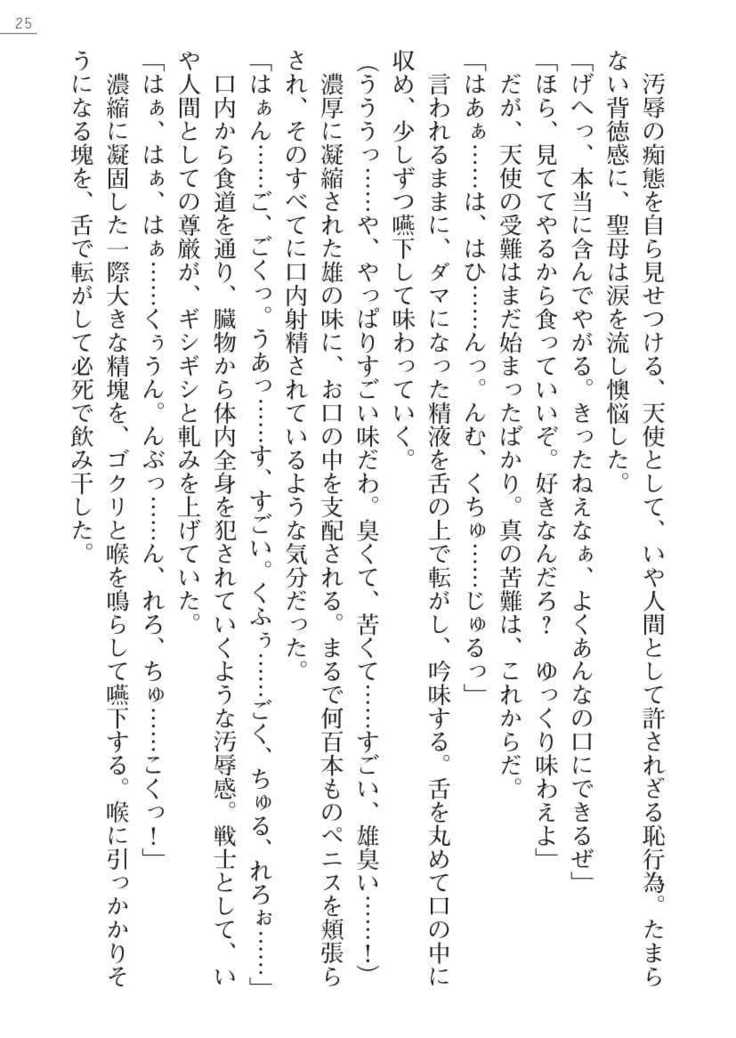 25
汚辱の痴態を自ら見せつける、天使として、いや人間として許されざる恥行為。たまら
ない背徳感に、聖母は涙を流し懊悩した。
「げへっ、本当に含んでやがる。きったねえなぁ、よくあんなの口にできるぜ」
「ほら、見ててやるから食っていいぞ。好きなんだろ？　ゆっくり味わえよ」
だが、天使の受難はまだ始まったばかり。真の苦難は、これからだ。
「はあぁ……は、はひ……んっ。んむ、くちゅ……じゅるっ」
言われるままに、ダマになった精液を舌の上で転がし、吟味する。舌を丸めて口の中に
収め、少しずつ嚥下して味わっていく。
（うううっ……や、やっぱりすごい味だわ。臭くて、苦くて……すごい、雄臭い……！）
濃厚に凝縮された雄の味に、お口の中を支配される。まるで何百本ものペニスを頬張ら
され、そのすべてに口内射精されているような気分だった。
「はぁん……ご、ごくっ。うあっ……す、すごい。くふぅ……ごく、ちゅる、れろぉ……」
口内から食道を通り、臓物から体内全身を犯されていくような汚辱感。戦士として、い
や人間としての尊厳が、ギシギシと軋みを上げていた。
「はぁ、はぁ、はぁ……くぅうん。んぶっ……ん、れろ、ちゅ……こくっ！」
濃縮に凝固した一際大きな精塊を、ゴクリと喉を鳴らして嚥下する。喉に引っかかりそ
うになる塊を、舌で転がして必死で飲み干した。